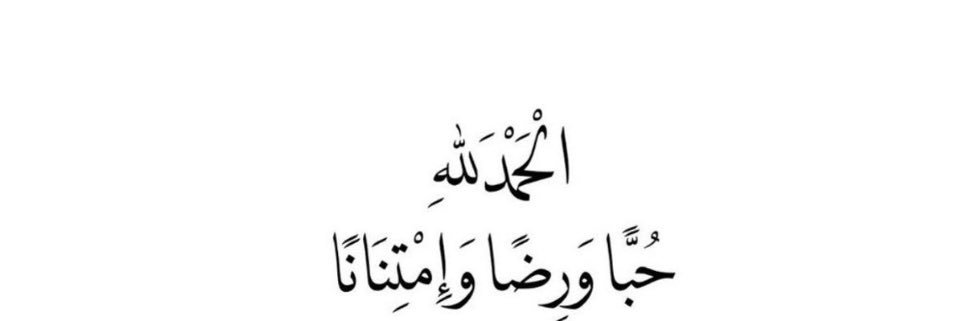 الْحَمْدَ للهِ
حُبًّا وَرِضًا وَإِمْتِنَانًا